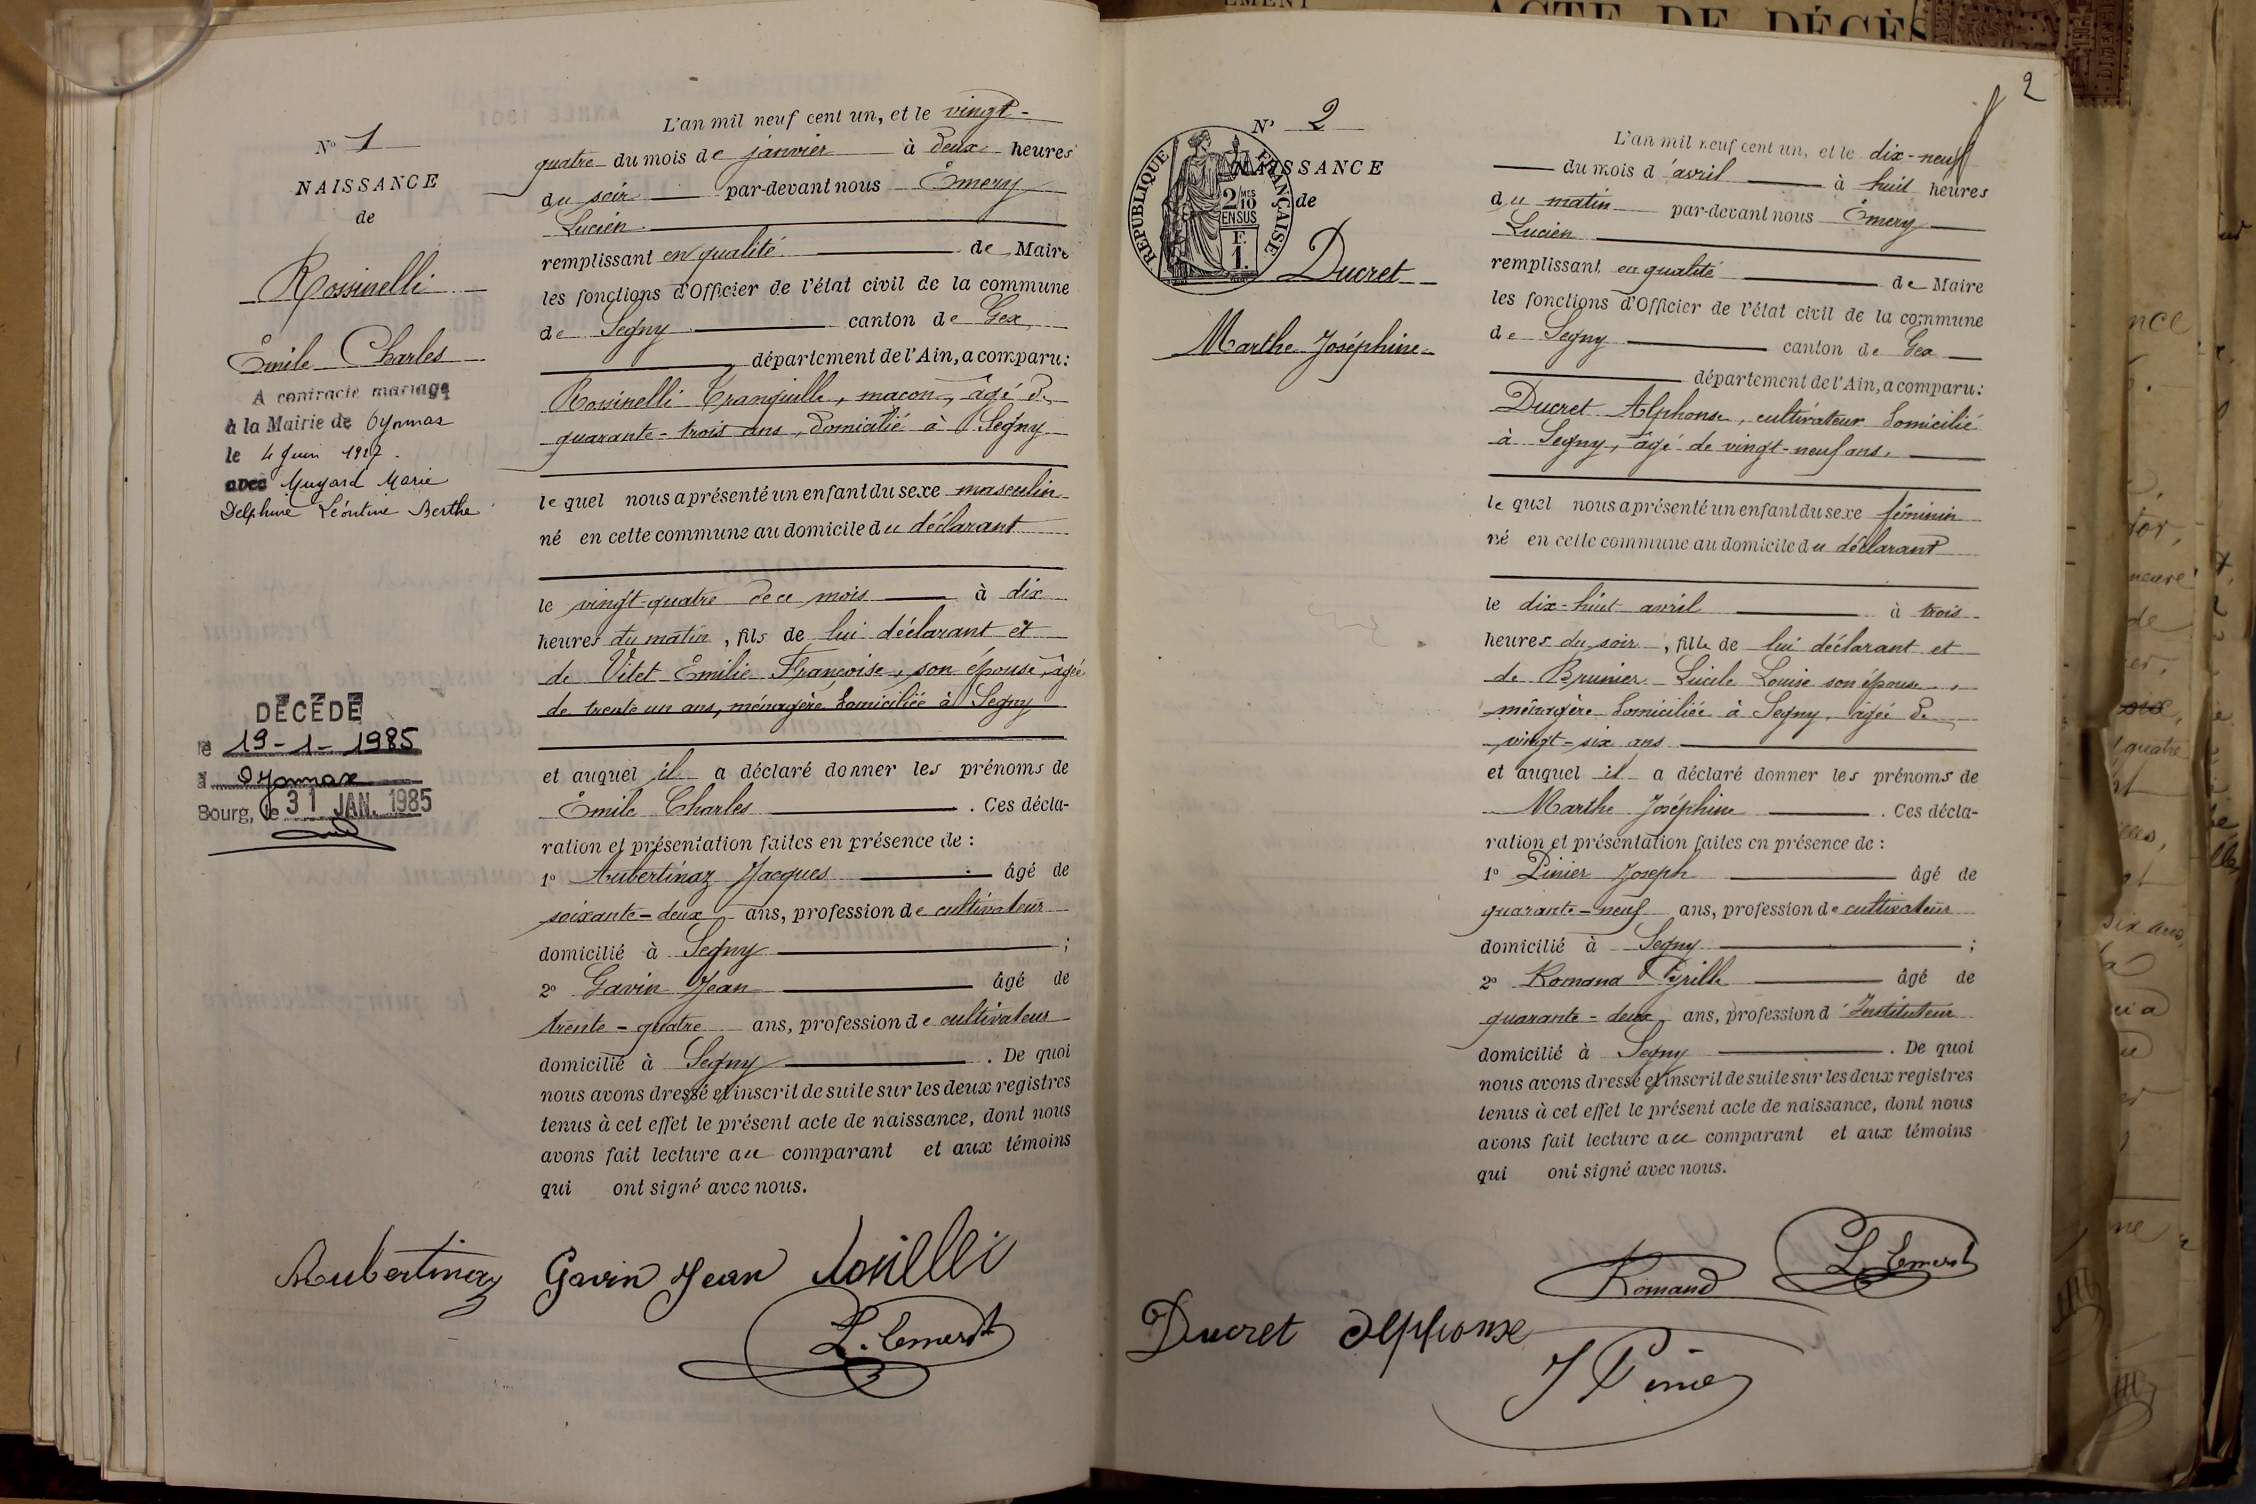 N° 1
NAISSANCE
de
Rossinelli
Émile Charles
A contracté mariage
à la Mairie de Oyonnax
le 4 Juin 1927.
avec Muyard Marie
Delphine Léontine Berthe
DÉCÉDÉ
le 19-1-1985
à Oyonnax
Bourg, le 31 JAN. 1985
L'an mil neuf cent un, et le vingt-
quatre du mois de janvier à deux heures
du soir par-devant nous Émery
Lucien
remplissant en qualité de Maire
les fonctions d'Officier de l'état civil de la commune
de Segny canton de Gex
département de l'Ain, a comparu:
Rossinelli Tranquille, maçon, âgé de
quarante-trois ans, domicilié à Segny
lequel nous a présenté un enfant du sexe masculin
né en cette commune au domicile du déclarant
le vingt-quatre de ce mois à dix
heures du matin, fils de lui déclarant et
de Vitet Emilie Françoise, son épouse, âgée
de trente un ans, ménagère domiciliée à Segny
et auquel il a déclaré donner les prénoms de
Émile Charles. Ces décla-
ration et présentation faites en présence de :
1° Aubertinaz Jacques âgé de
soixante-deux ans, profession de cultivateur
domicilié à Segny ;
2° Gavin Jean âgé de
trente-quatre ans, profession de cultivateur
domicilié à Segny. De quoi
nous avons dressé et inscrit de suite sur les deux registres
tenus à cet effet le présent acte de naissance, dont nous
avons fait lecture au comparant et aux témoins
qui ont signé avec nous.
Aubertinaz Gavin Jean
L. Emery
EMENT
ACTE DE DÉCÈS
2
N° 2
NAISSANCE
de
RÉPUBLIQUE FRANÇAISE
2 MES 10
EN SUS
F.
1.
Ducret
Marthe Joséphine
L'an mil neuf cent un, et le dix-neuf
du mois d'avril à huit heures
du matin par-devant nous Émery
Lucien
remplissant en qualité de Maire
les fonctions d'Officier de l'état civil de la commune
de Segny canton de Gex
département de l'Ain, a comparu:
Ducret Alphonse, cultivateur domicilié
à Segny, âgé de vingt-neuf ans,
lequel nous a présenté un enfant du sexe féminin
né en cette commune au domicile du déclarant
le dix-huit avril à trois
heures du soir, fille de lui déclarant et
de Brunier Lucile Louise son épouse,
ménagère domiciliée à Segny, âgée de
vingt-six ans
et auquel il a déclaré donner les prénoms de
Marthe Joséphine. Ces décla-
ration et présentation faites en présence de :
1° Pinier Joseph âgé de
quarante-neuf ans, profession de cultivateur
domicilié à Segny ;
2° Romand Cyrille âgé de
quarante-deux ans, profession d'Instituteur
domicilié à Segny. De quoi
nous avons dressé et inscrit de suite sur les deux registres
tenus à cet effet le présent acte de naissance, dont nous
avons fait lecture au comparant et aux témoins
qui ont signé avec nous.
Romand L. Emery
Ducret Alphonse
J Pinier